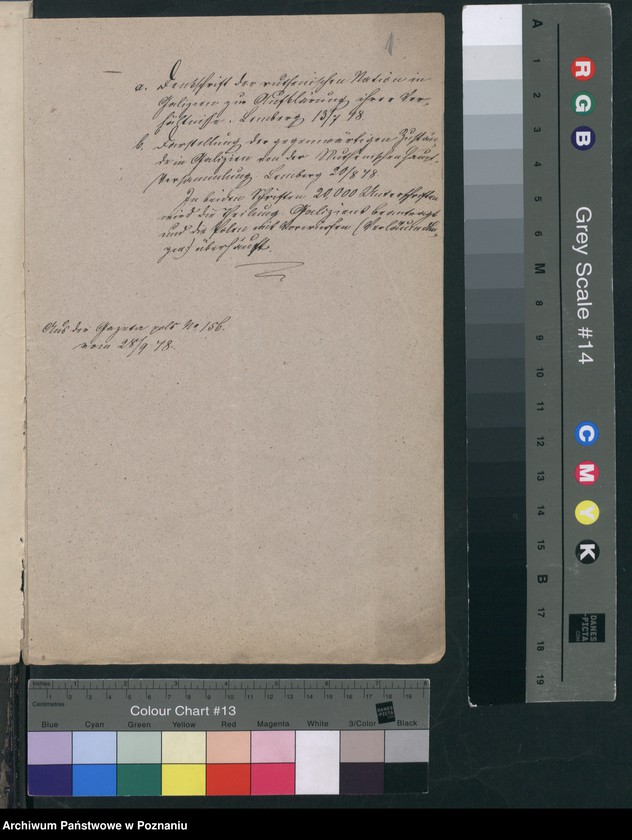 1
a. Denkschrift der ruthenischen Nation in
Galizien zur Aufklärung ihrer Ver-
hältnisse. Lemberg 13/7 48.
b. Darstellung der gegenwärtigen Zustän-
de in Galizien von der Ruthenischen Haupt-
Versammlung. Lemberg 20/8 48.
In beiden Schriften 20,000 Unterschriften
wird die Theilung Galiziens beantragt
und die Polen mit Vorwürfen
überhäuft.
Aus der Gazeta pols No 156.
vom 28/9 48.
Inches
Centimetres
1 2 3 4 5 6 7 8 9 10 11 12 13 14 15 16 17 18 19
Colour Chart #13
DANES
PICTA
Blue Cyan Green Yellow Red Magenta White 3/Color Black
A 1 2 3 4 5 6 M 8 9 10 11 12 13 14 15 B 17 18 19
R G B
Grey Scale #14
C M Y K
DANES
-PICTA
.COM
Archiwum Państwowe w Poznaniu